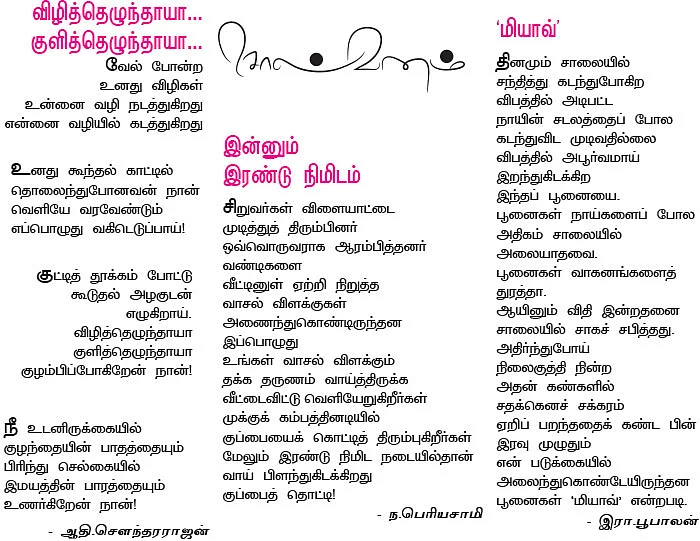 விழித்தெழுந்தாயா...
குளித்தெழுந்தாயா...
வேல் போன்ற
உனது விழிகள்
உன்னை வழி நடத்துகிறது
என்னை வழியில் கடத்துகிறது
உனது கூந்தல் காட்டில்
தொலைந்துபோனவன் நான்
வெளியே வரவேண்டும்
எப்பொழுது வகிடெடுப்பாய்!
குட்டித் தூக்கம் போட்டு
கூடுதல் அழகுடன்
எழுகிறாய்.
விழித்தெழுந்தாயா
குளித்தெழுந்தாயா
குழம்பிப்போகிறேன் நான்!
நீ உடனிருக்கையில்
குழந்தையின் பாதத்தையும்
பிரிந்து செல்கையில்
இமயத்தின் பாரத்தையும்
உணர்கிறேன் நான்!
- ஆதி.சௌந்தரராஜன்
சொல்வனம்
இன்னும்
இரண்டு நிமிடம்
சிறுவர்கள் விளையாட்டை
முடித்துத் திரும்பினர்
ஒவ்வொருவராக ஆரம்பித்தனர்
வண்டிகளை
வீட்டினுள் ஏற்றி நிறுத்த
வாசல் விளக்குகள்
அணைந்துகொண்டிருந்தன
இப்பொழுது
உங்கள் வாசல் விளக்கும்
தக்க தருணம் வாய்த்திருக்க
வீட்டைவிட்டு வெளியேறுகிறீர்கள்
முக்குக் கம்பத்தினடியில்
குப்பையைக் கொட்டித் திரும்புகிறீர்கள்
மேலும் இரண்டு நிமிட நடையில்தான்
வாய் பிளந்துகிடக்கிறது
குப்பைத் தொட்டி!
- ந.பெரியசாமி
‘மியாவ்’
தினமும் சாலையில்
சந்தித்து கடந்துபோகிற
விபத்தில் அடிபட்ட
நாயின் சடலத்தைப் போல
கடந்துவிட முடிவதில்லை
விபத்தில் அபூர்வமாய்
இறந்துகிடக்கிற
இந்தப் பூனையை.
பூனைகள் நாய்களைப் போல
அதிகம் சாலையில்
அலையாதவை.
பூனைகள் வாகனங்களைத்
துரத்தா.
ஆயினும் விதி இன்றதனை
சாலையில் சாகச் சபித்தது.
அதிர்ந்துபோய்
நிலைகுத்தி நின்ற
அதன் கண்களில்
சதக்கெனச் சக்கரம்
ஏறிப் பறந்ததைக் கண்ட பின்
இரவு முழுதும்
என் படுக்கையில்
அலைந்துகொண்டேயிருந்தன
பூனைகள் ‘மியாவ்’ என்றபடி.
- இரா.பூபாலன்